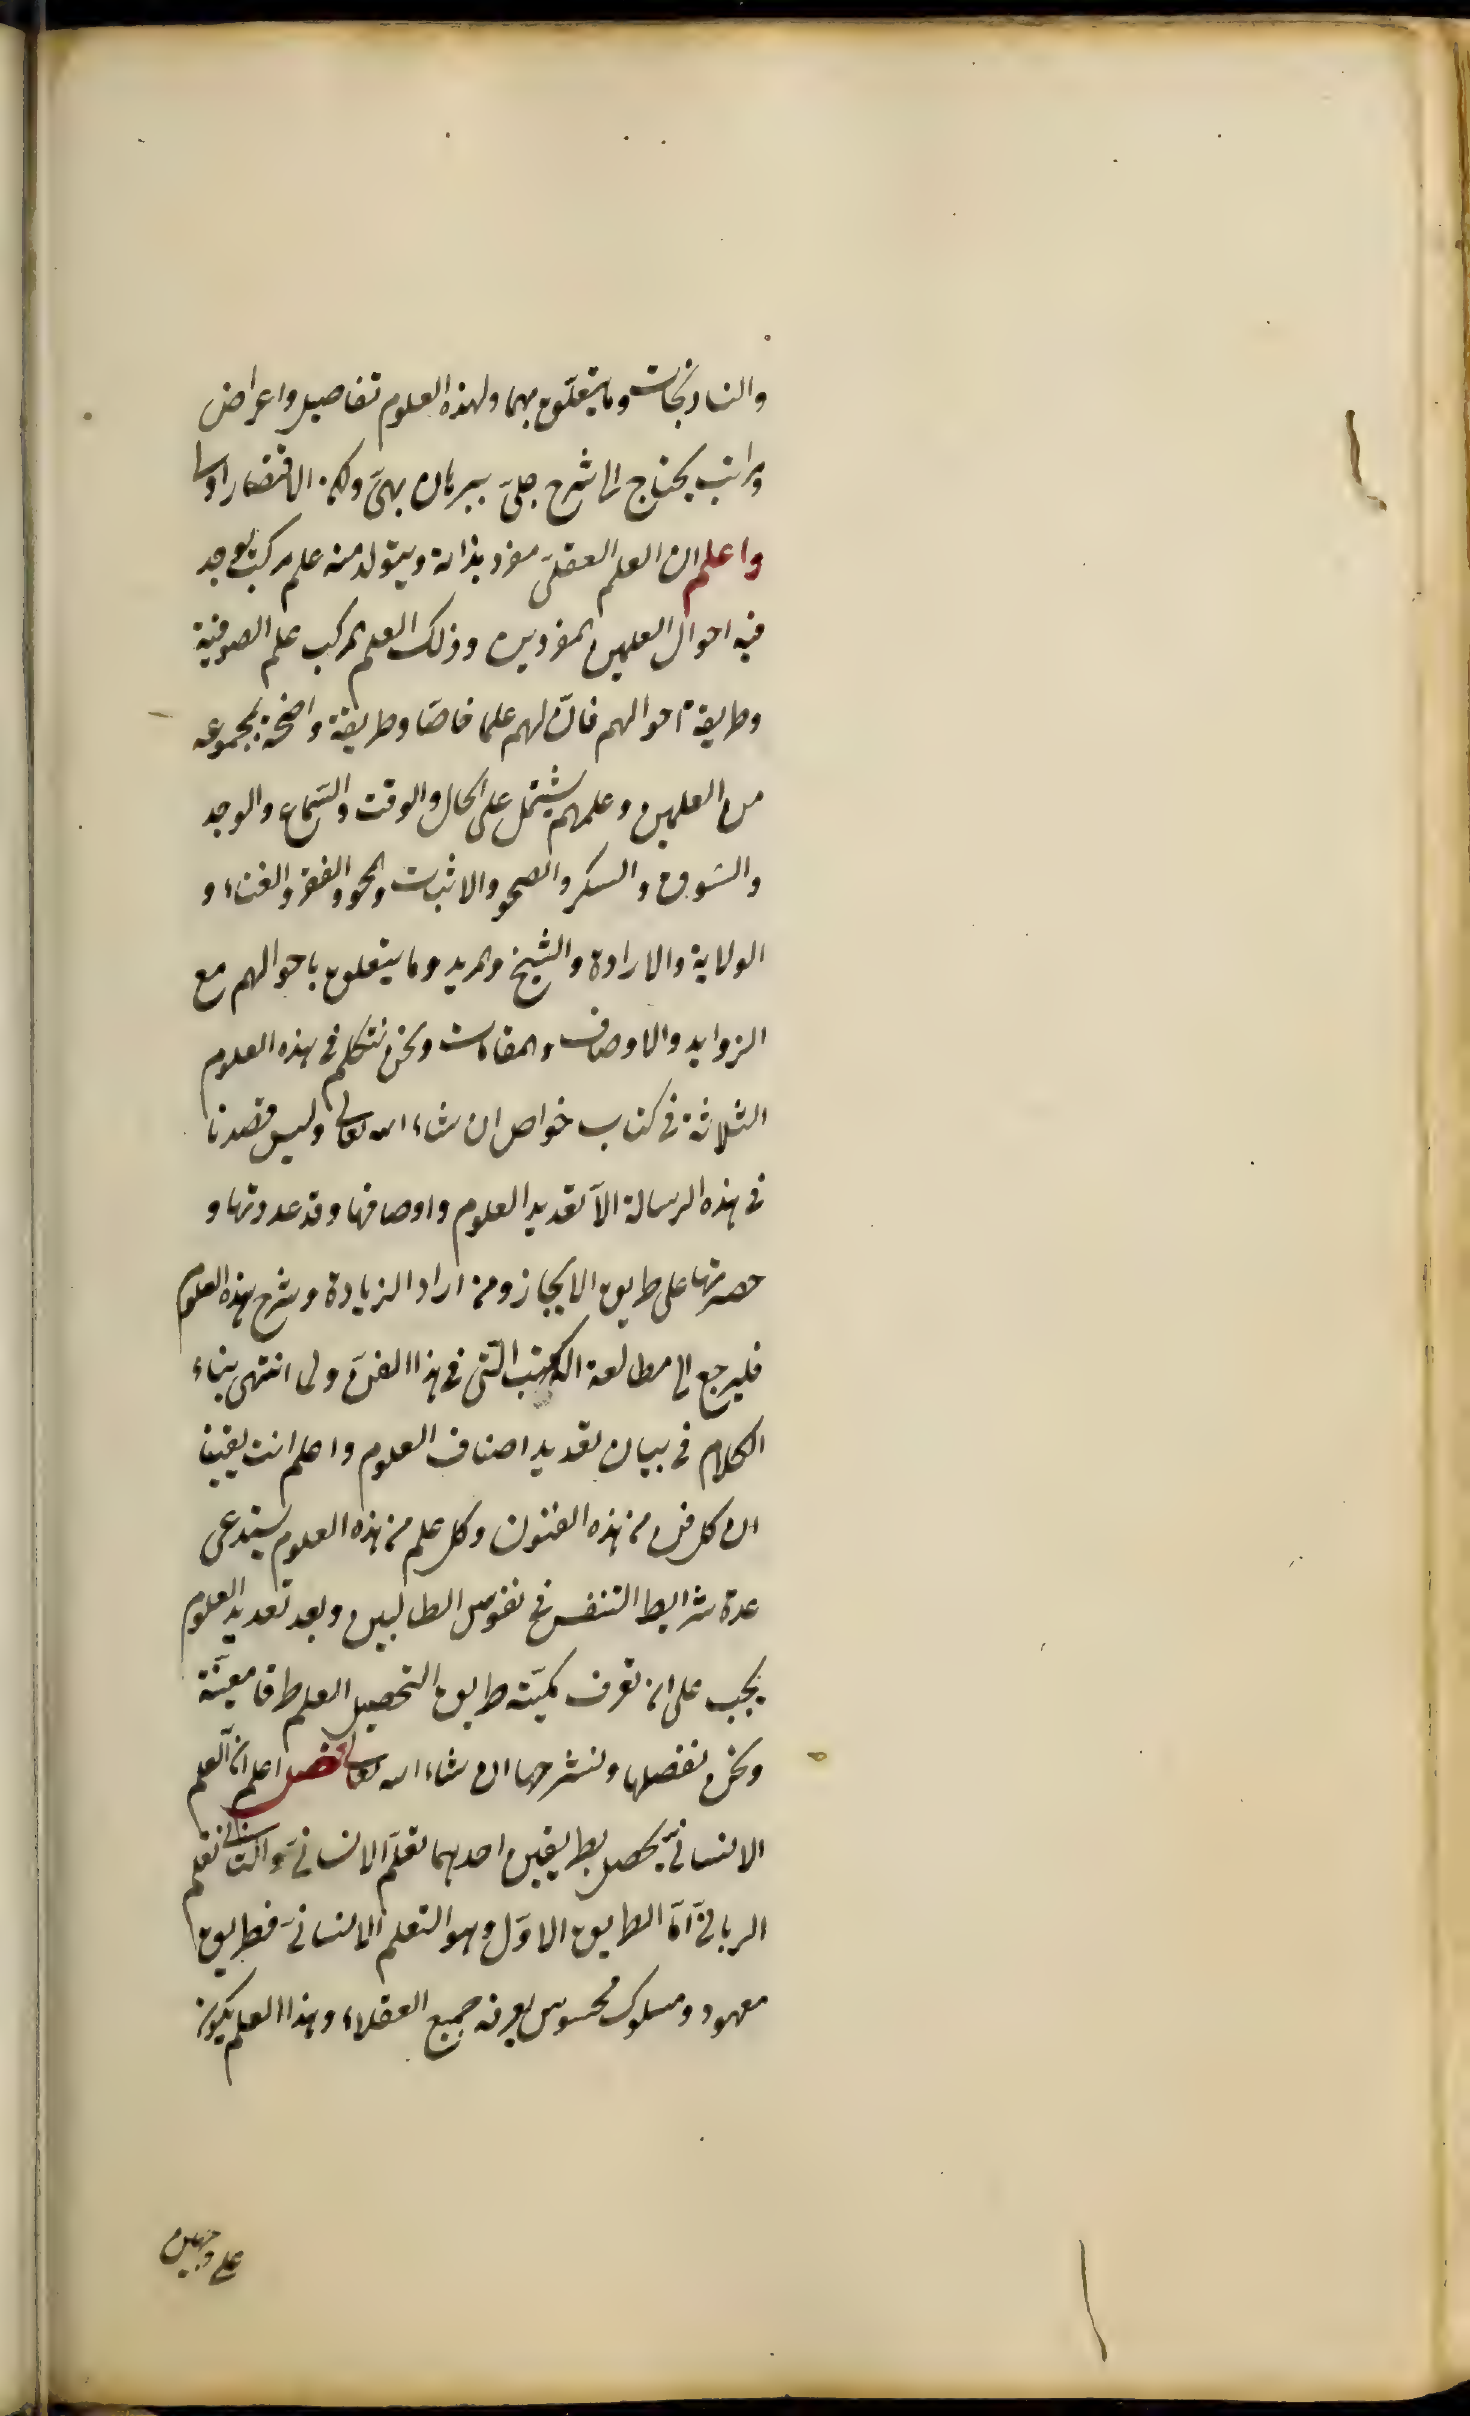 والنارنجات وما يتعلق بهما ولهذه العلوم تفاصيل واعراض
ومراتب يحتاج الى شرح جلىّ ببرهان بهىّ ولكن الاقتصار اولى
واعلم ان العلم العقلىّ مفرد بذاته ويتولد منه علم مركب يوجد
فيه احوال العلمين المفردين وذلك العلم المركب علم الصوفية
وطريقة احوالهم فانّ لهم علما خاصّا وطريقة واضحة مجموعه
من العلمين وعلمهم يشتمل على الحال والوقت والسّماع والوجد
والشوق والسكر والصحو والاثبات والمحو والفقر والفناء و
الولاية والارادة والشيخ والمريد وما يتعلق باحوالهم مع
الزوايد والاوصاف والمقامات ونحن نتكلم فى هذه العلوم
الثلاثة فى كتاب خواص ان شاء الله تعالى وليس قصدنا
فى هذه الرسالة الاّ تعديد العلوم واوصافها وقد عددتها و
حصرتها على طريق الايجاز ومن اراد الزيادة وشرح هذه العلوم
فليرجع الى مطالعة الكتب التّى فى هذا الفنّ ولما انتهى بناء
الكلام فى بيان تعديد اصناف العلوم واعلم انت يقينا
ان كل فن من هذه الفنون وكل علم من هذه العلوم يستدعى
عدة شرايط التنفس فى نفوس الطالبين وبعد تعديد العلوم
يجب على ان تعرف كميّة طريق التحصيل العلم طرقا معيّنة
ونحن نفصلها ونشرحها ان شاء الله تعالى فصل اعلم انّ العلم
الانسانىّ يحصل بطريقين احدهما تعلّم الانسانىّ والثانى تعلم
الربانىّ امّا الطريق الاوّل وهو التعلم الانسانىّ فطريق
معهود ومسلوك محسوس يعرفه جميع العقلاء وهذا العلم يكون
على وجهين